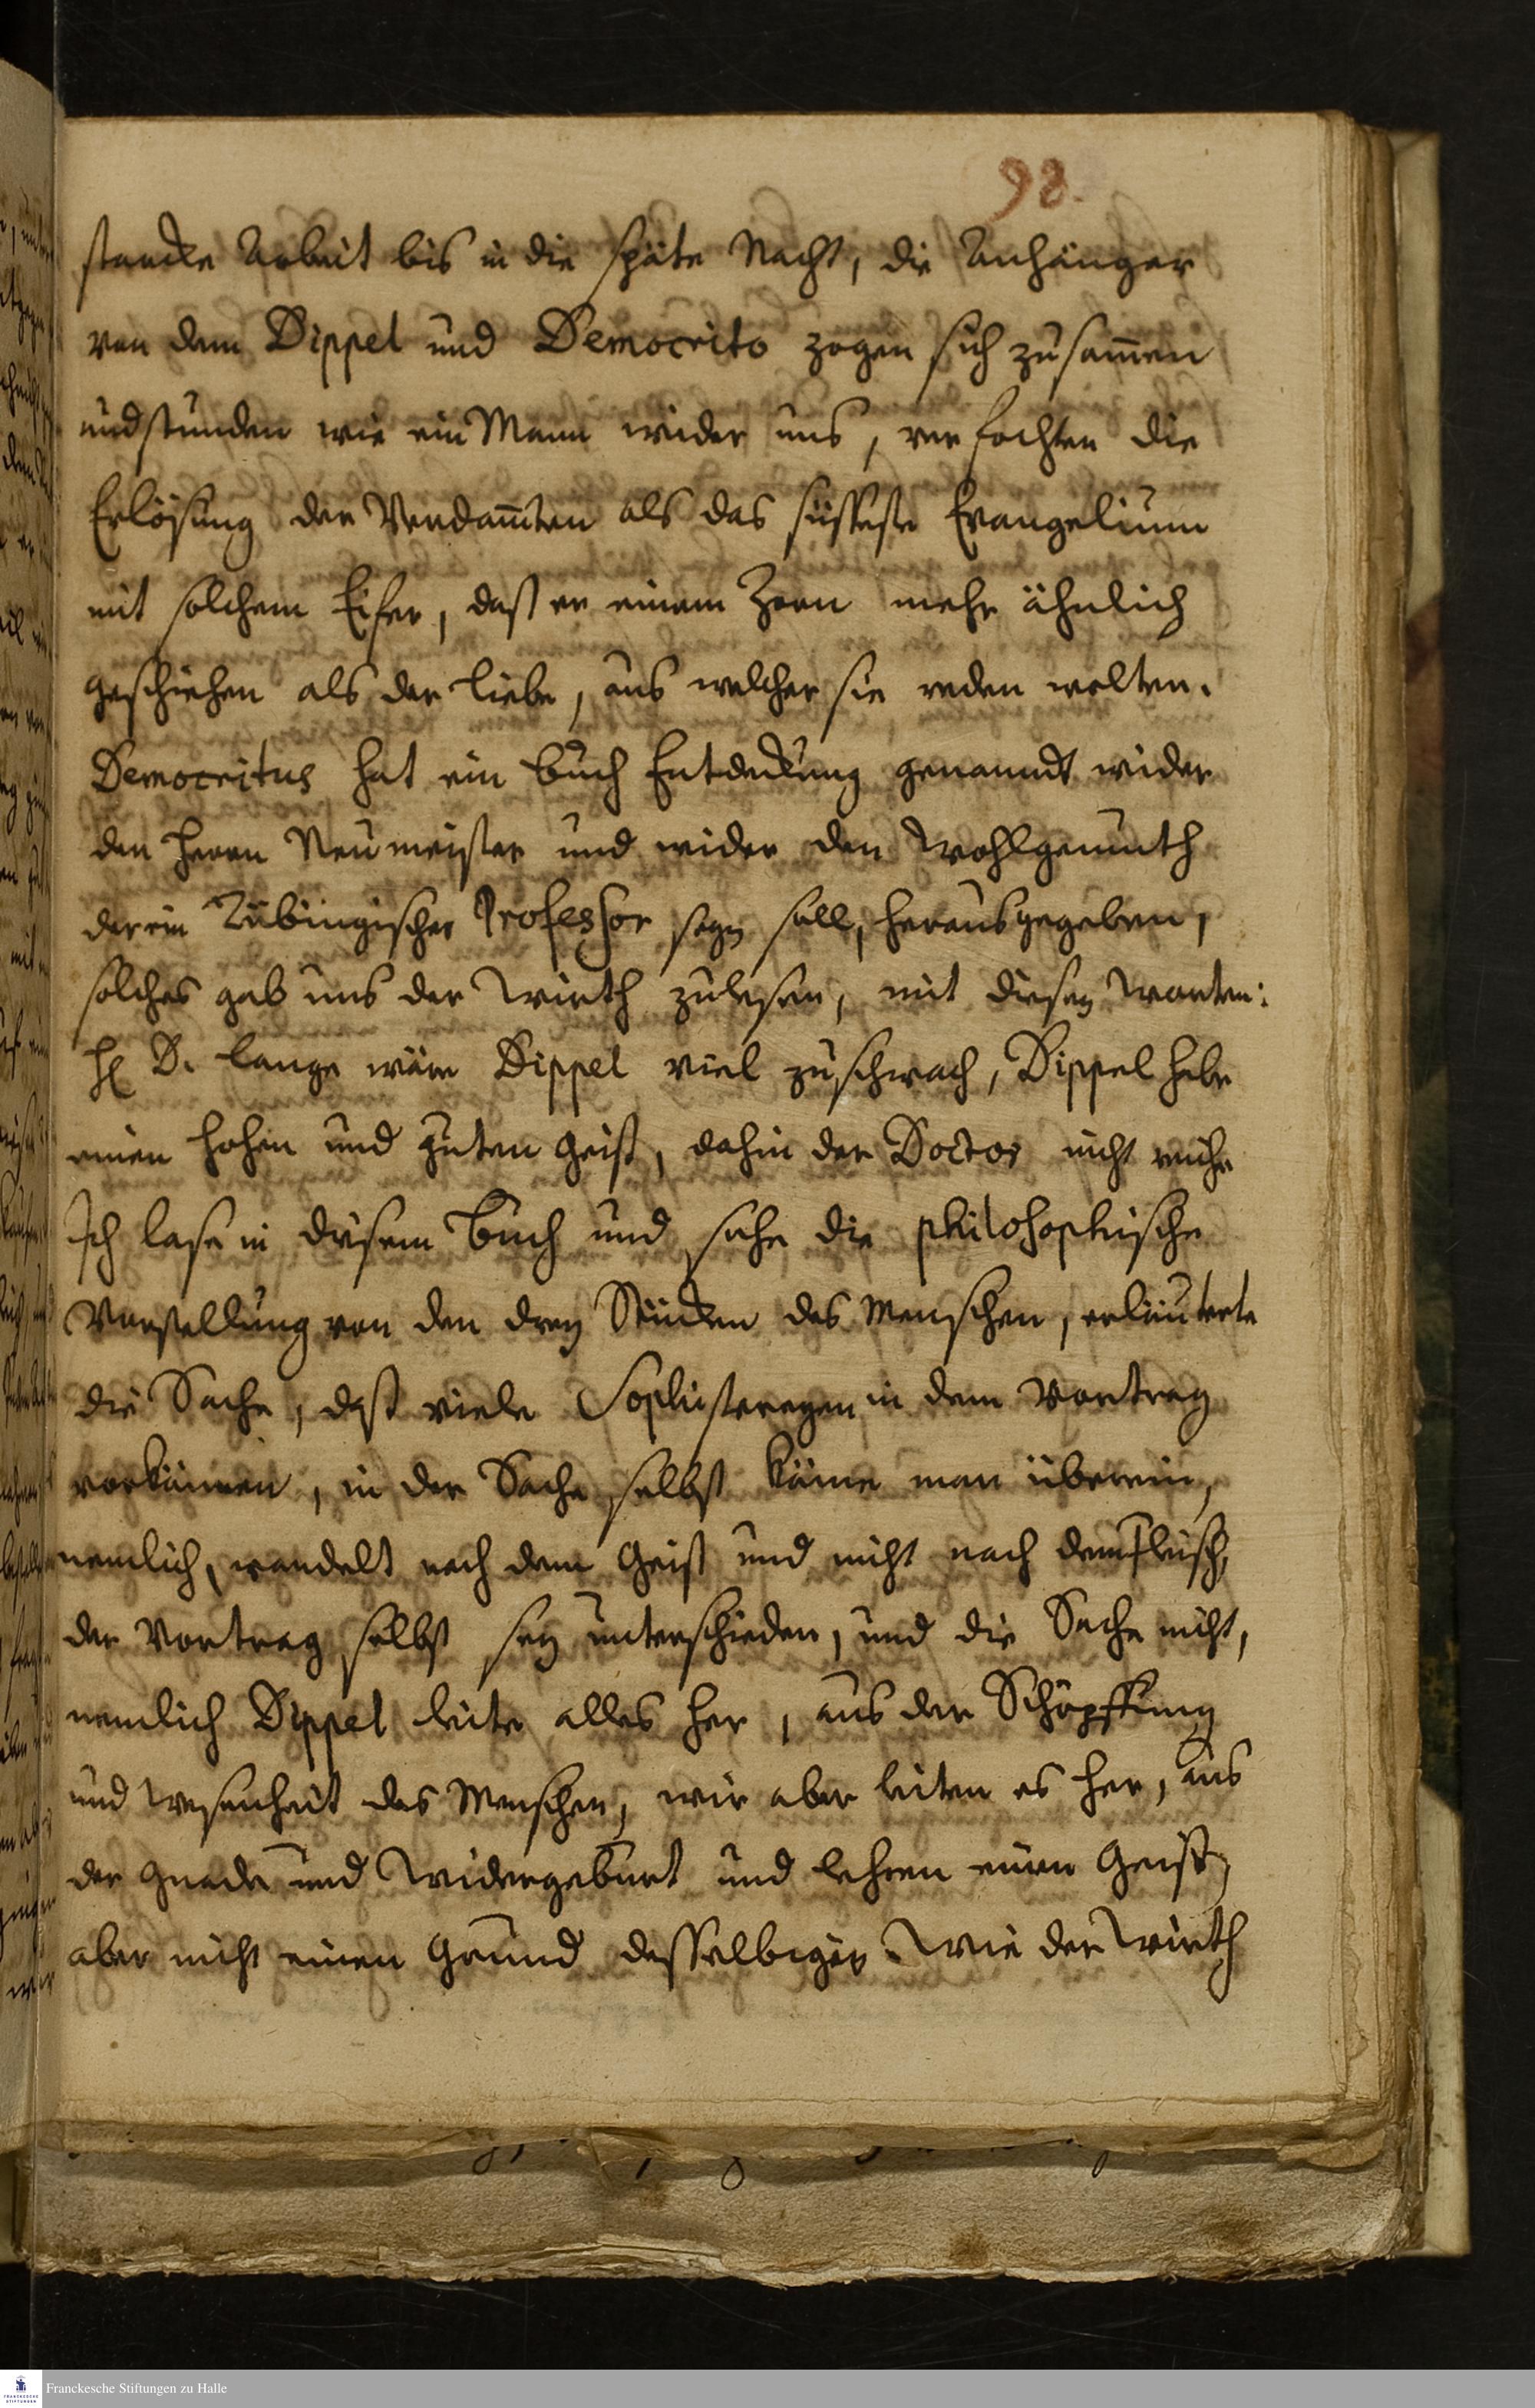 98.
starcke Arbeit bis in die späte Nacht, die Anhänger
von dem Dippel und Democrito zogen sich zusam̄en
und stunden wie ein Mann wider uns, verfochten die
Erlösung der Verdam̄ten als das süsseste Evangelium
mit solchem Eifer, daß er einem Zorn mehr ähnlich
geschiehen als der Liebe, aus welcher sie reden wolten.
Democritus hat ein Buch Entdeckung genanndt wider
den Herrn Neumeister und wider den Wohlgemuth
der ein Tübingischer Professor seyn soll, herausgegeben,
solches gab uns der Wirth zulesen, mit diesen Worten:
H D. Lange wäre Dippel viel zuschwach, Dippel habe
einen hohen und guten Geist, dahin der Doctor nicht reiche
Ich lase in disem Buch und sahe die philosophische
Vorstellung von den drey Stücken des Menschen, erläuterte
die Sache, daß viele Sophistereyen in dem Vortrag
vorkämen, in der Sache selbst käme man überein,
nemlich, wandelt nach dem Geist und nicht nach dem Fleisch,
der Vortrag selbst sey unterschieden, und die Sache nicht,
nemlich Dippel leite alles her, aus der Schöpffung
und Wesenheit des Menschen, wir aber leiten es her, aus
der Gnade und Widergeburt und lehren einen Geist,
aber nicht einen Grund desselbigen. Wie der Wirth
Franckesche Stiftungen zu Halle